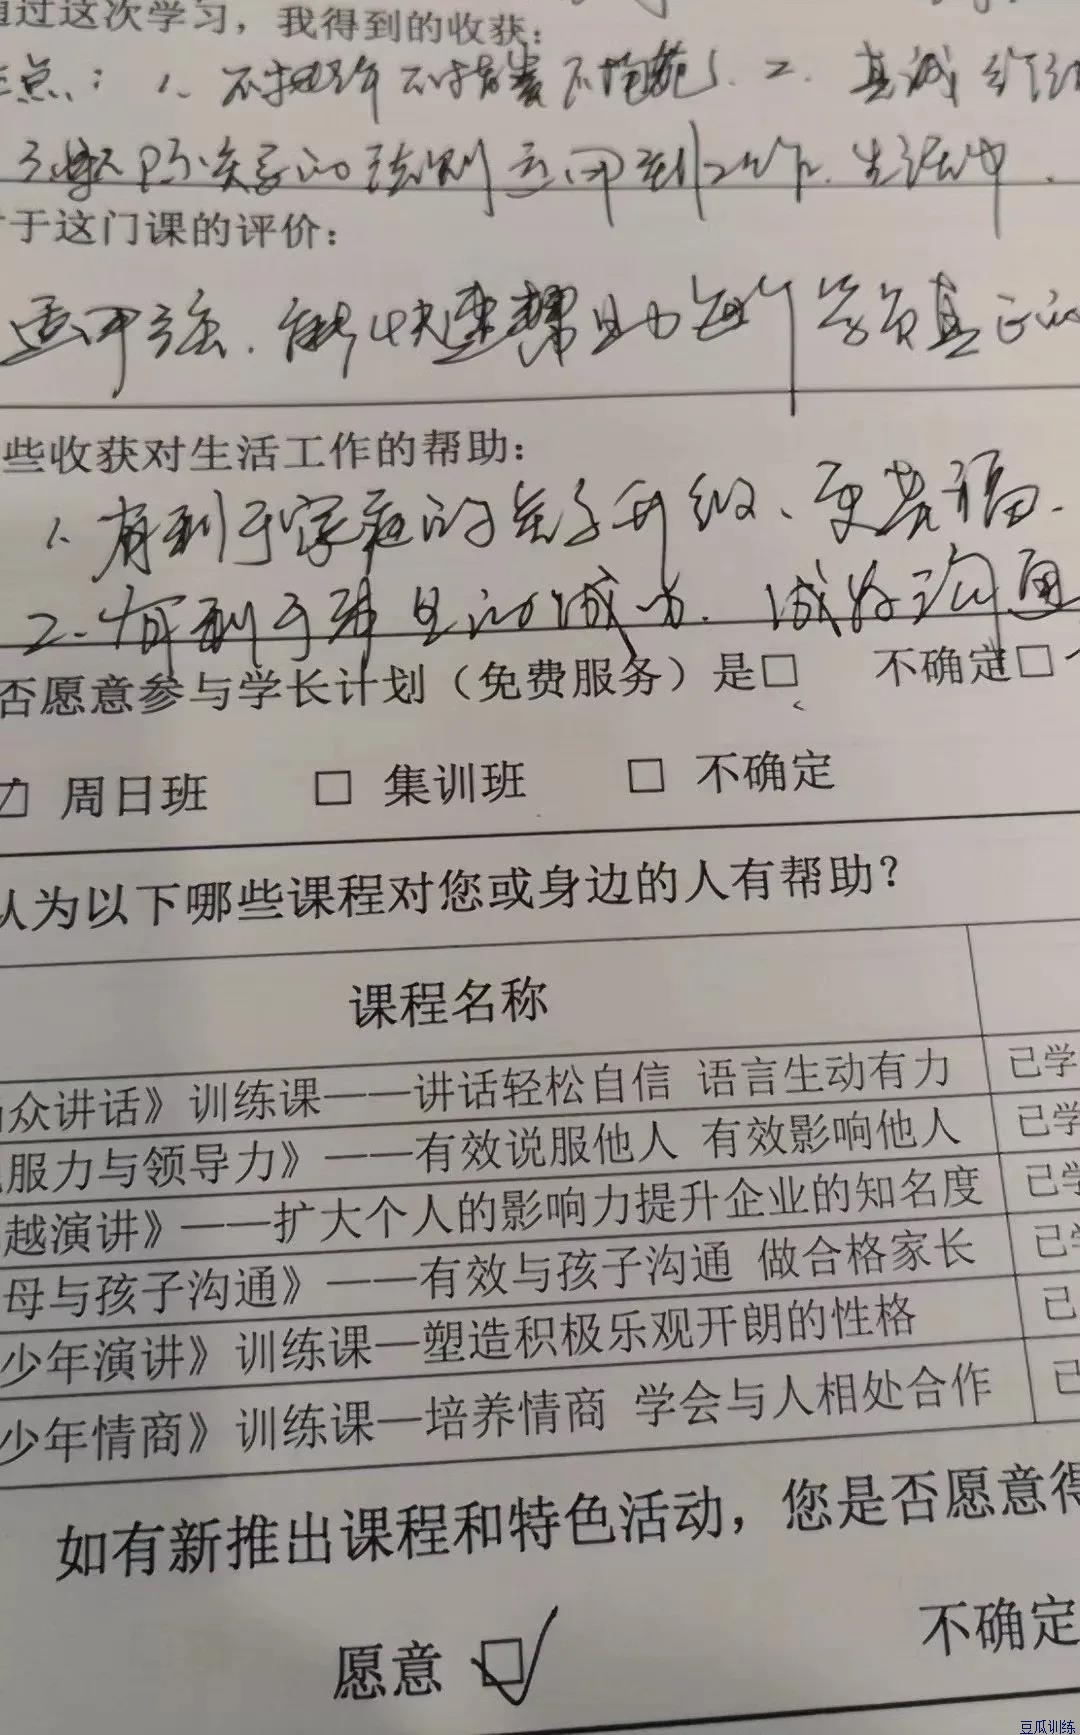 通过这次学习，我得到的收获：
点：1、不批评不指责不抱怨、2. 真诚
3. 人际关系的法则运用到工作、生活中.
于这门课的评价：
适用强. 能快速帮助每个学员真正的
些收获对生活工作的帮助：
1、有利于家庭的关系升级、更幸福.
2、有利于的成功.沟通
否愿意参与学长计划（免费服务）是□ 不确定□
周日班 □ 集训班 □ 不确定
认为以下哪些课程对您或身边的人有帮助？
课程名称
众讲话》训练课——讲话轻松自信 语言生动有力 已学
服力与领导力》——有效说服他人 有效影响他人 已学
越演讲》——扩大个人的影响力提升企业的知名度 已学
母与孩子沟通》——有效与孩子沟通 做合格家长 已学
少年演讲》训练课—塑造积极乐观开朗的性格 已
少年情商》训练课—培养情商 学会与人相处合作 已
如有新推出课程和特色活动，您是否愿意得
愿意 ☑ 不确定
豆瓜训练